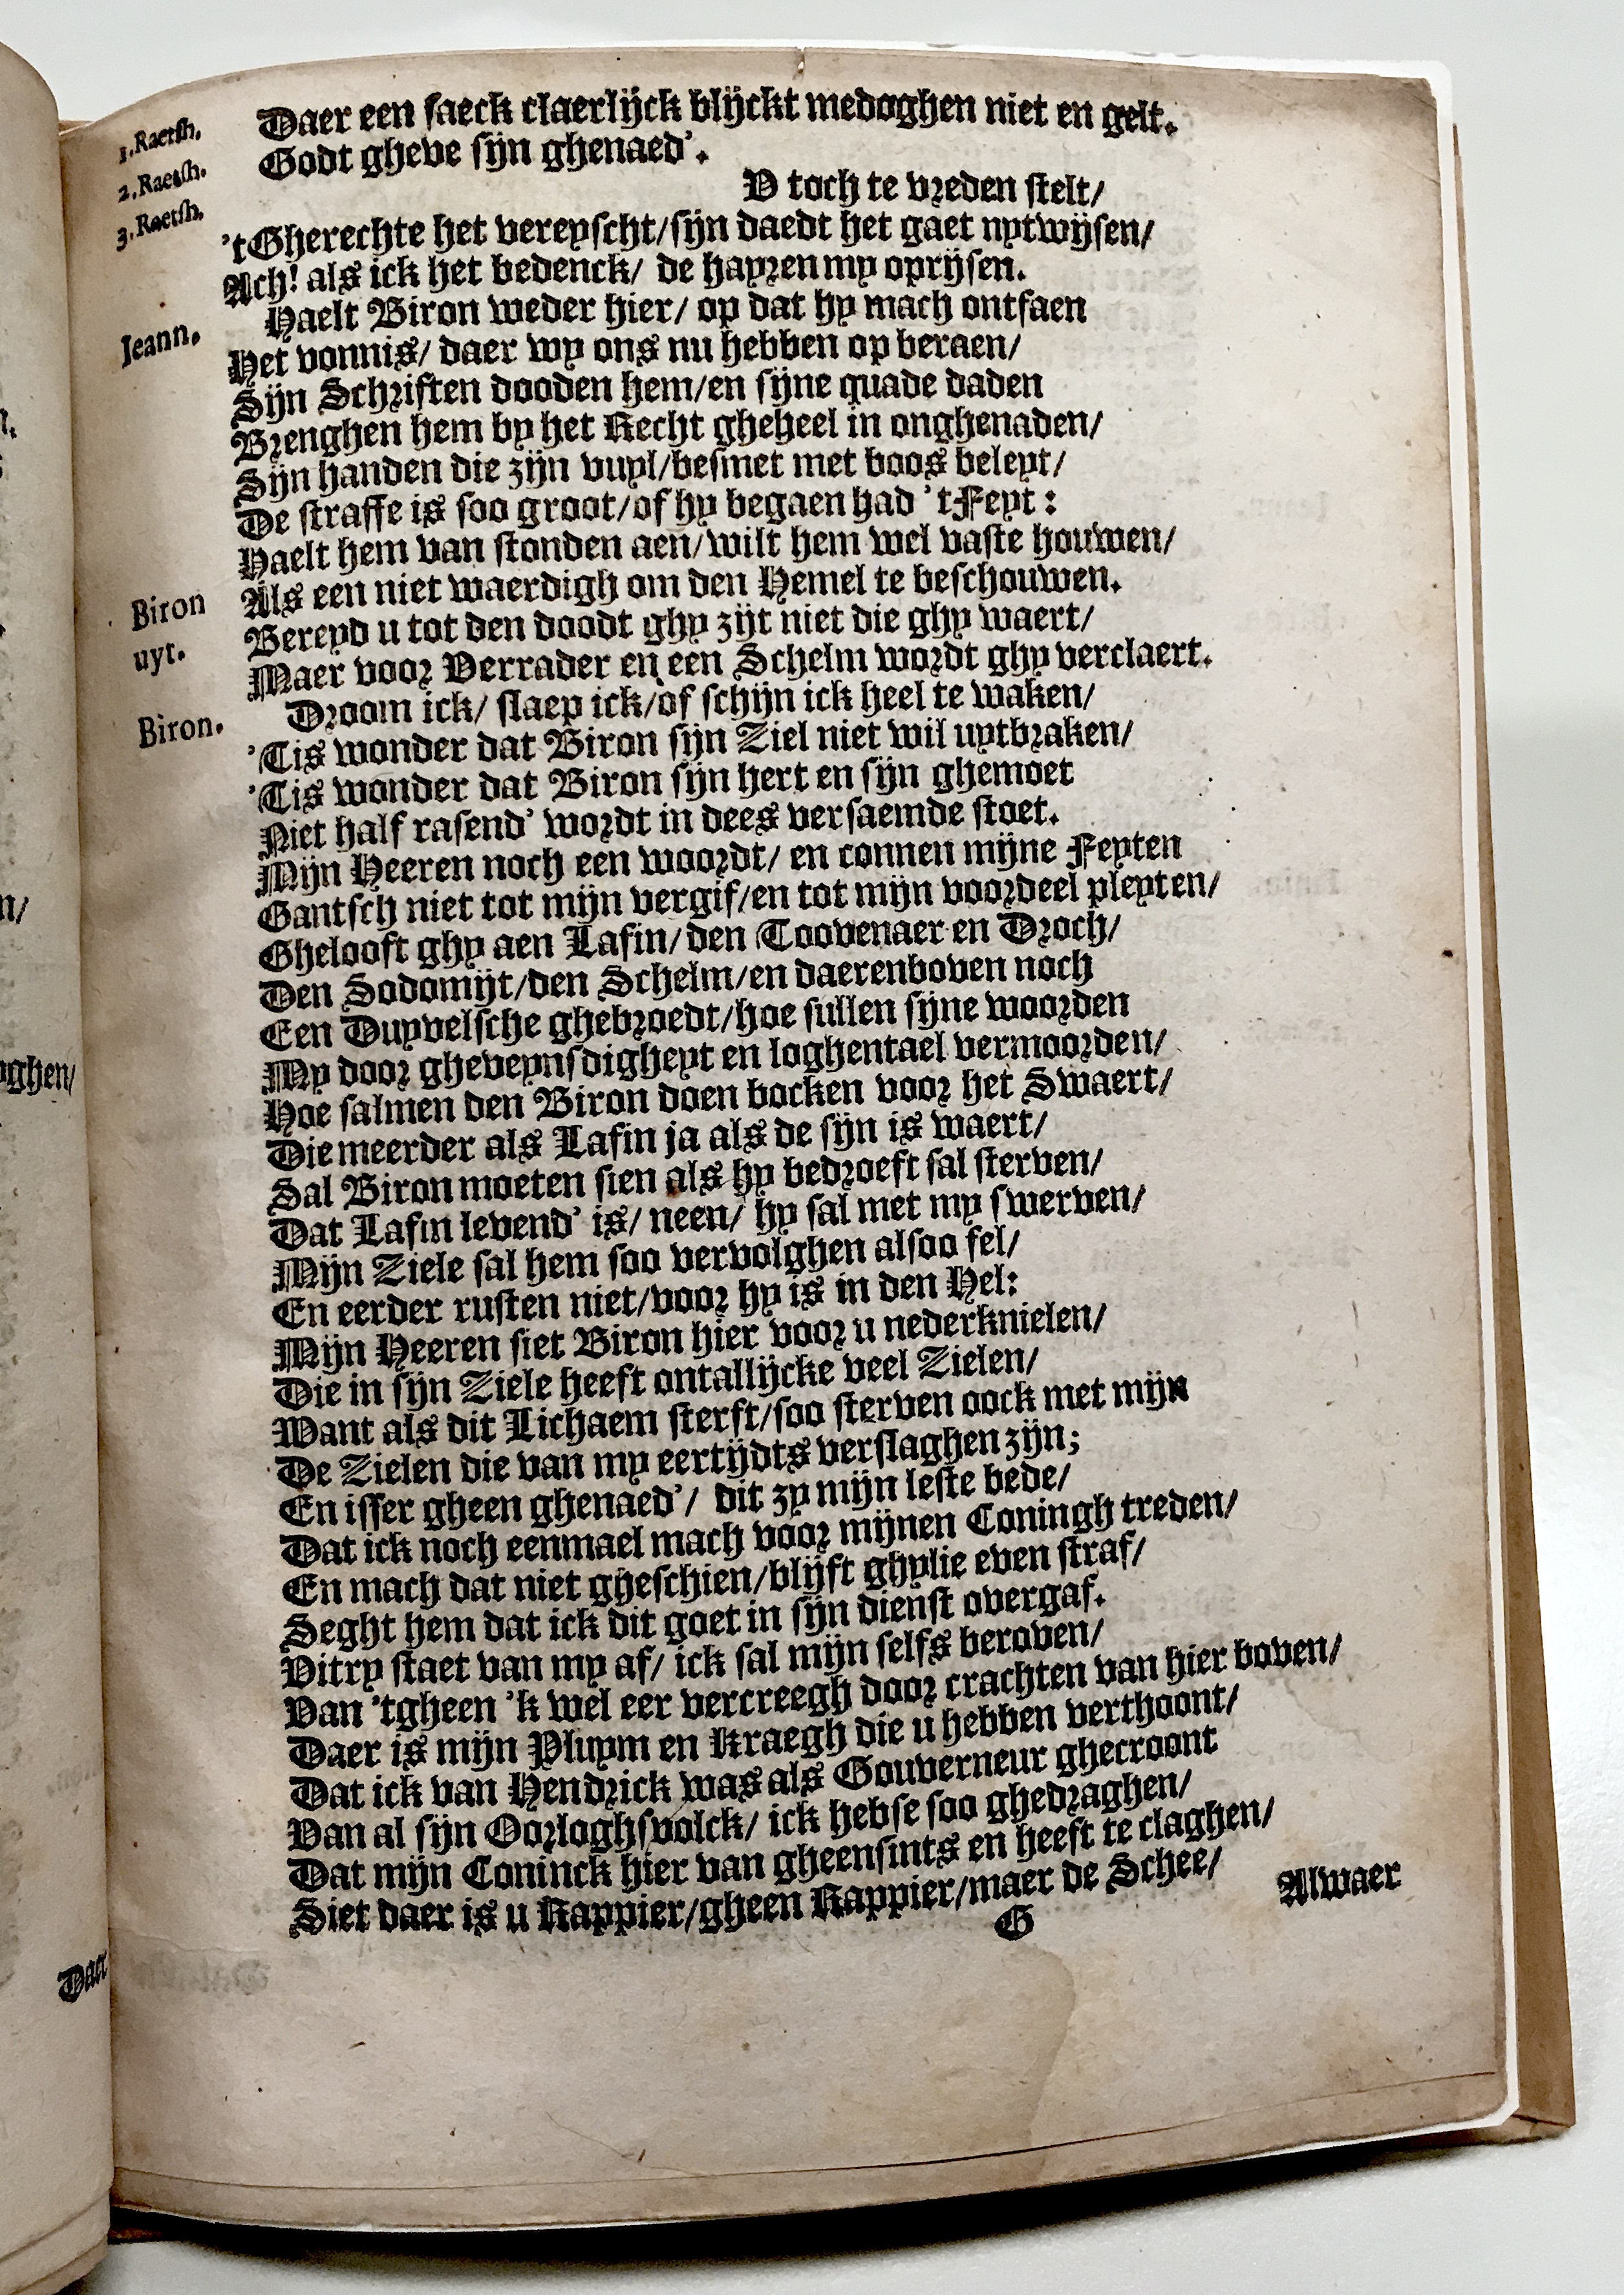 1. Raetsh. Daer een saeck claerlijck blijckt medoghen niet en gelt.
2. Raetsh. Godt gheve sijn ghenaed'.
3. Raetsh. V toch te vreden stelt/
'tGherechte het vereyscht/sijn daedt het gaet uytwijsen/
Ach! als ick het bedenck/ de hayren my oprijsen.
Ieann. Haelt Biron weder hier/ op dat hy mach ontfaen
Het vonnis/ daer wy ons nu hebben op beraen/
Sijn Schriften dooden hem/en sijne quade daden
Brenghen hem by het Recht gheheel in onghenaden/
Sijn handen die zijn vuyl/besmet met boos beleyt/
De straffe is soo groot/of hy begaen had 't Feyt:
Haelt hem van stonden aen/wilt hem wel vaste houwen/
Als een niet waerdigh om den Hemel te beschouwen.
Biron uyt. Bereyd u tot den doodt ghy zijt niet die ghy waert/
Maer voor Verrader en een Schelm wordt ghy verclaert.
Biron. Droom ick/ slaep ick/of schijn ick heel te waken/
'Tis wonder dat Biron sijn Ziel niet wil uytbraken/
'Tis wonder dat Biron sijn hert en sijn ghemoet
Niet half rasend' wordt in dees versaemde stoet.
Mijn Heeren noch een woordt/ en connen mijne Feyten
Gantsch niet tot mijn vergif/en tot mijn voordeel pleyten/
Ghelooft ghy aen Lafin/ den Toovenaer en Droch/
Den Sodomijt/den Schelm/en daerenboven noch
Een Duyvelsche ghebroedt/hoe sullen sijne woorden
My door gheveynsdigheyt en loghentael vermoorden/
Hoe salmen den Biron doen bocken voor het Swaert/
Die meerder als Lafin ja als de sijn is waert/
Sal Biron moeten sien als hy bedroeft sal sterven/
Dat Lafin levend' is/ neen/ hy sal met my swerven/
Mijn Ziele sal hem soo vervolghen alsoo fel/
En eerder rusten niet/voor hy is in den Hel:
Mijn Heeren siet Biron hier voor u nederknielen/
Die in sijn Ziele heeft ontallijcke veel Zielen/
Want als dit Lichaem sterft/soo sterven oock met mijn
De Zielen die van my eertijdts verslaghen zijn;
En isser gheen ghenaed'/ dit zy mijn leste bede/
Dat ick noch eenmael mach voor mijnen Coningh treden/
En mach dat niet gheschien/blijft ghylie even straf/
Seght hem dat ick dit goet in sijn dienst overgaf.
Vitry staet van my af/ ick sal mijn selfs beroven/
Van 'tgheen 'k wel eer vercreegh door crachten van hier boven/
Daer is mijn Pluym en Kraegh die u hebben verthoont/
Dat ick van Hendrick was als Gouverneur ghecroont
Van al sijn Oorloghsvolck/ ick hebse soo ghedraghen/
Dat mijn Coninck hier van gheensints en heeft te claghen/
Siet daer is u Rappier/gheen Rappier/maer de Schee/
G
Alwaer